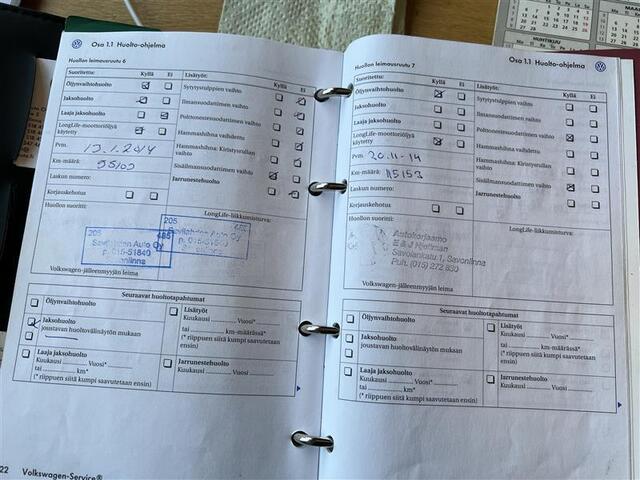 Osa 1.1 Huolto-ohjelma
Huollon leimausruutu 6
Suoritettu:
Kyllä
Ei
Lisätyöt:
Kyllä
Ei
Öljynvaihtohuolto
Sytytystulppien vaihto
Jaksohuolto
Ilmansuodattimen vaihto
Laaja jaksohuolto
Polttonestesuodattimen vaihto
LongLife-moottoriöljyä
käytetty
Hammashihna vaihdettu
Pvm.
Hammashihna: Kiristysrullan
vaihto
Km-määrä:
Sisäilmansuodattimen vaihto
Laskun numero:
Jarrunestehuolto
Korjauskehotus
Huollon suoritti:
LongLife-liikkumisturva:
205
Savilahden Auto Oy
p. 015-51840
Volkswagen-jälleenmyyjän leima
Seuraavat huoltotapahtumat
Öljynvaihtohuolto
Jaksohuolto
joustavan huoltovälinäytön mukaan
Laaja jaksohuolto
Kuukausi Vuosi*
tai km*
(* riippuen siitä kumpi saavutetaan ensin)
Lisätyöt
Kuukausi Vuosi*
tai km-määrässä*
(* riippuen siitä kumpi saavutetaan ensin)
Jarrunestehuolto
Kuukausi Vuosi
22 Volkswagen-Service®
Osa 1.1 Huolto-ohjelma
Huollon leimausruutu 7
Suoritettu:
Kyllä
Ei
Lisätyöt:
Kyllä
Ei
Öljynvaihtohuolto
Sytytystulppien vaihto
Jaksohuolto
Ilmansuodattimen vaihto
Laaja jaksohuolto
Polttonestesuodattimen vaihto
LongLife-moottoriöljyä
käytetty
Hammashihna vaihdettu
Pvm. 20.11-14
Hammashihna: Kiristysrullan
vaihto
Km-määrä: 115153
Sisäilmansuodattimen vaihto
Laskun numero:
Jarrunestehuolto
Korjauskehotus
Huollon suoritti:
LongLife-liikkumisturva:
Autokorjaamo
Savolankatu.1, Savonlinna
Puh. (015) 272 830
Volkswagen-jälleenmyyjän leima
Seuraavat huoltotapahtumat
Öljynvaihtohuolto
Jaksohuolto
joustavan huoltovälinäytön mukaan
Laaja jaksohuolto
Kuukausi Vuosi*
tai km*
(* riippuen siitä kumpi saavutetaan ensin)
Lisätyöt
Kuukausi Vuosi*
tai km-määrässä*
(* riippuen siitä kumpi saavutetaan ensin)
Jarrunestehuolto
Kuukausi Vuosi